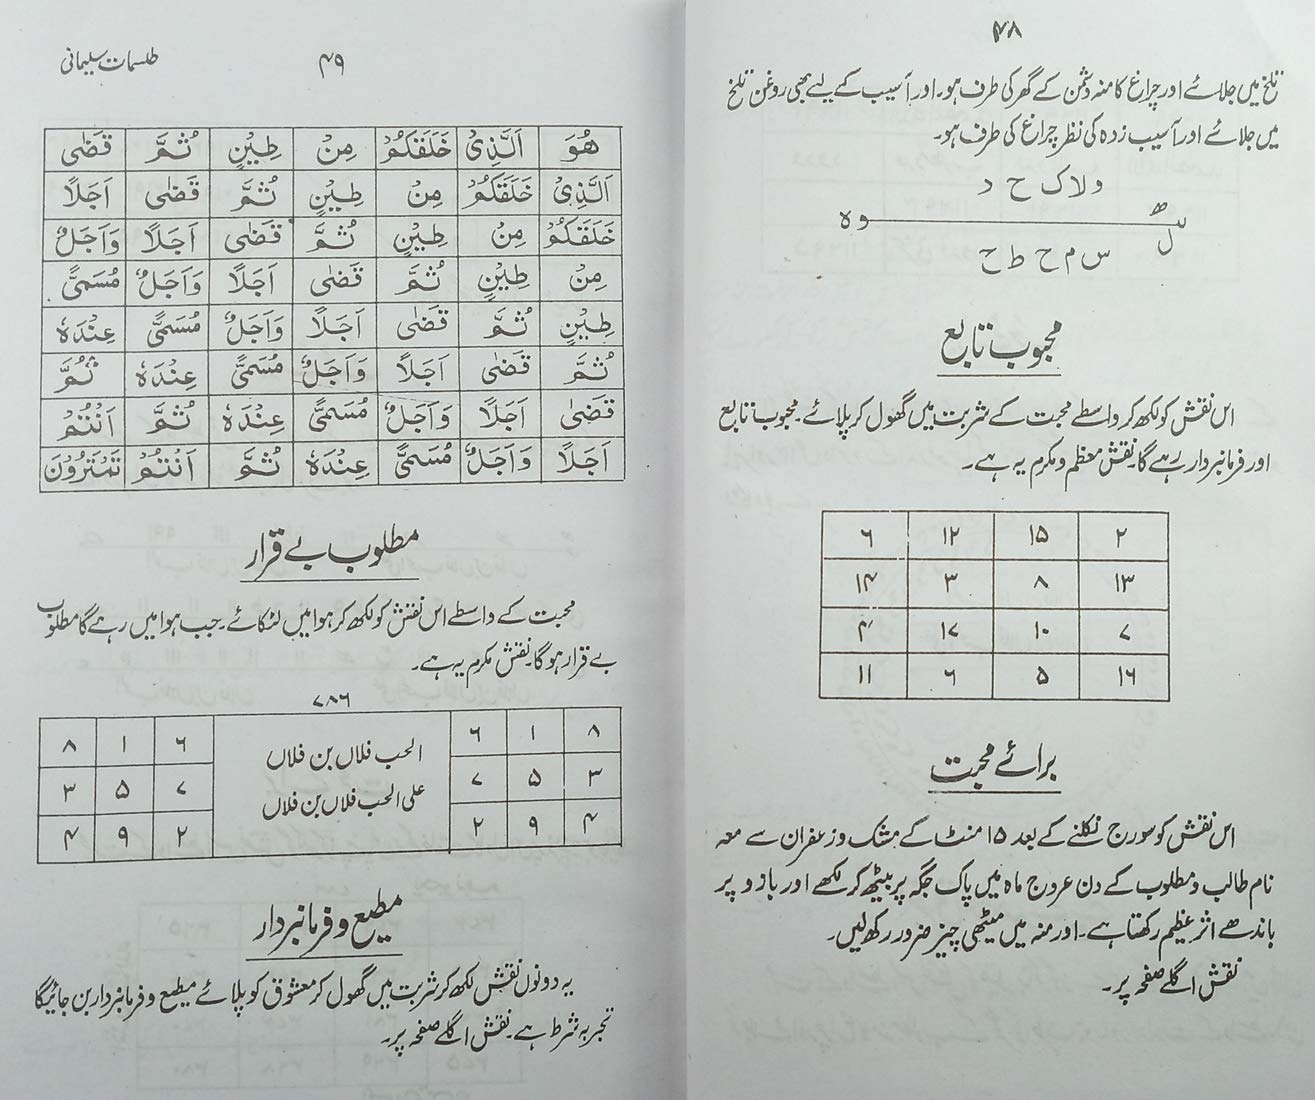 ۴۸
تلخ میں جلائے اور چراغ کا منہ دشمن کے گھر کی طرف ہو۔ اور آسیب کے لیے بھی روغن تلخ
میں جلائے اور آسیب زدہ کی نظر چراغ کی طرف ہو۔
و لا ک ح د
وہ
س م ح ط ح
محبوب تابع
اس نقش کو لکھ کر واسطے محبت کے شربت میں گھول کر پلائے۔ محبوب تابع
اور فرمانبردار رہے گا۔ نقش معظم و مکرم یہ ہے۔
۲ ۱۵ ۱۲ ۶
۱۳ ۸ ۳ ۱۴
۷ ۱۰ ۱۷ ۴
۱۶ ۵ ۶ ۱۱
برائے محبت
اس نقش کو سورج نکلنے کے بعد ۱۵ منٹ کے مشک و زعفران سے معہ
نام طالب و مطلوب کے دن عروج ماہ میں پاک جگہ پر بیٹھ کر لکھے اور بازو پر
باندھے اثر عظیم رکھتا ہے۔ اور منہ میں میٹھی چیز ضرور رکھ لیں۔
نقش اگلے صفحہ پر۔
۴۹
طلسمات سلیمانی
هُوَ اَلَّذِىْ خَلَقَكُمْ مِنْ طِيْنٍ ثُمَّ قَضٰى
اَلَّذِىْ خَلَقَكُمْ مِنْ طِيْنٍ ثُمَّ قَضٰى اَجَلًا
خَلَقَكُمْ مِنْ طِيْنٍ ثُمَّ قَضٰى اَجَلًا وَاَجَلٌ
مِنْ طِيْنٍ ثُمَّ قَضٰى اَجَلًا وَاَجَلٌ مُسَمًّى
طِيْنٍ ثُمَّ قَضٰى اَجَلًا وَاَجَلٌ مُسَمًّى عِنْدَهٗ
ثُمَّ قَضٰى اَجَلًا وَاَجَلٌ مُسَمًّى عِنْدَهٗ ثُمَّ
قَضٰى اَجَلًا وَاَجَلٌ مُسَمًّى عِنْدَهٗ ثُمَّ اَنْتُمْ
اَجَلًا وَاَجَلٌ مُسَمًّى عِنْدَهٗ ثُمَّ اَنْتُمْ تَمْتَرُوْنَ
مطلوب بے قرار
محبت کے واسطے اس نقش کو لکھ کر ہوا میں لٹکائے۔ جب ہوا میں رہے گا مطلوب
بے قرار ہو گا۔ نقش مکرم یہ ہے۔
۷۸۶
۸ ۱ ۶
۳ ۵ ۷
۴ ۹ ۲
الحب فلاں بن فلاں
علی الحب فلاں بن فلاں
۶ ۱ ۸
۷ ۵ ۳
۲ ۹ ۴
مطیع و فرمانبردار
یہ دونوں نقش لکھ کر شربت میں گھول کر معشوق کو پلائے مطیع و فرمانبردار بن جائیگا
تجربہ شرط ہے۔ نقش اگلے صفحہ پر۔